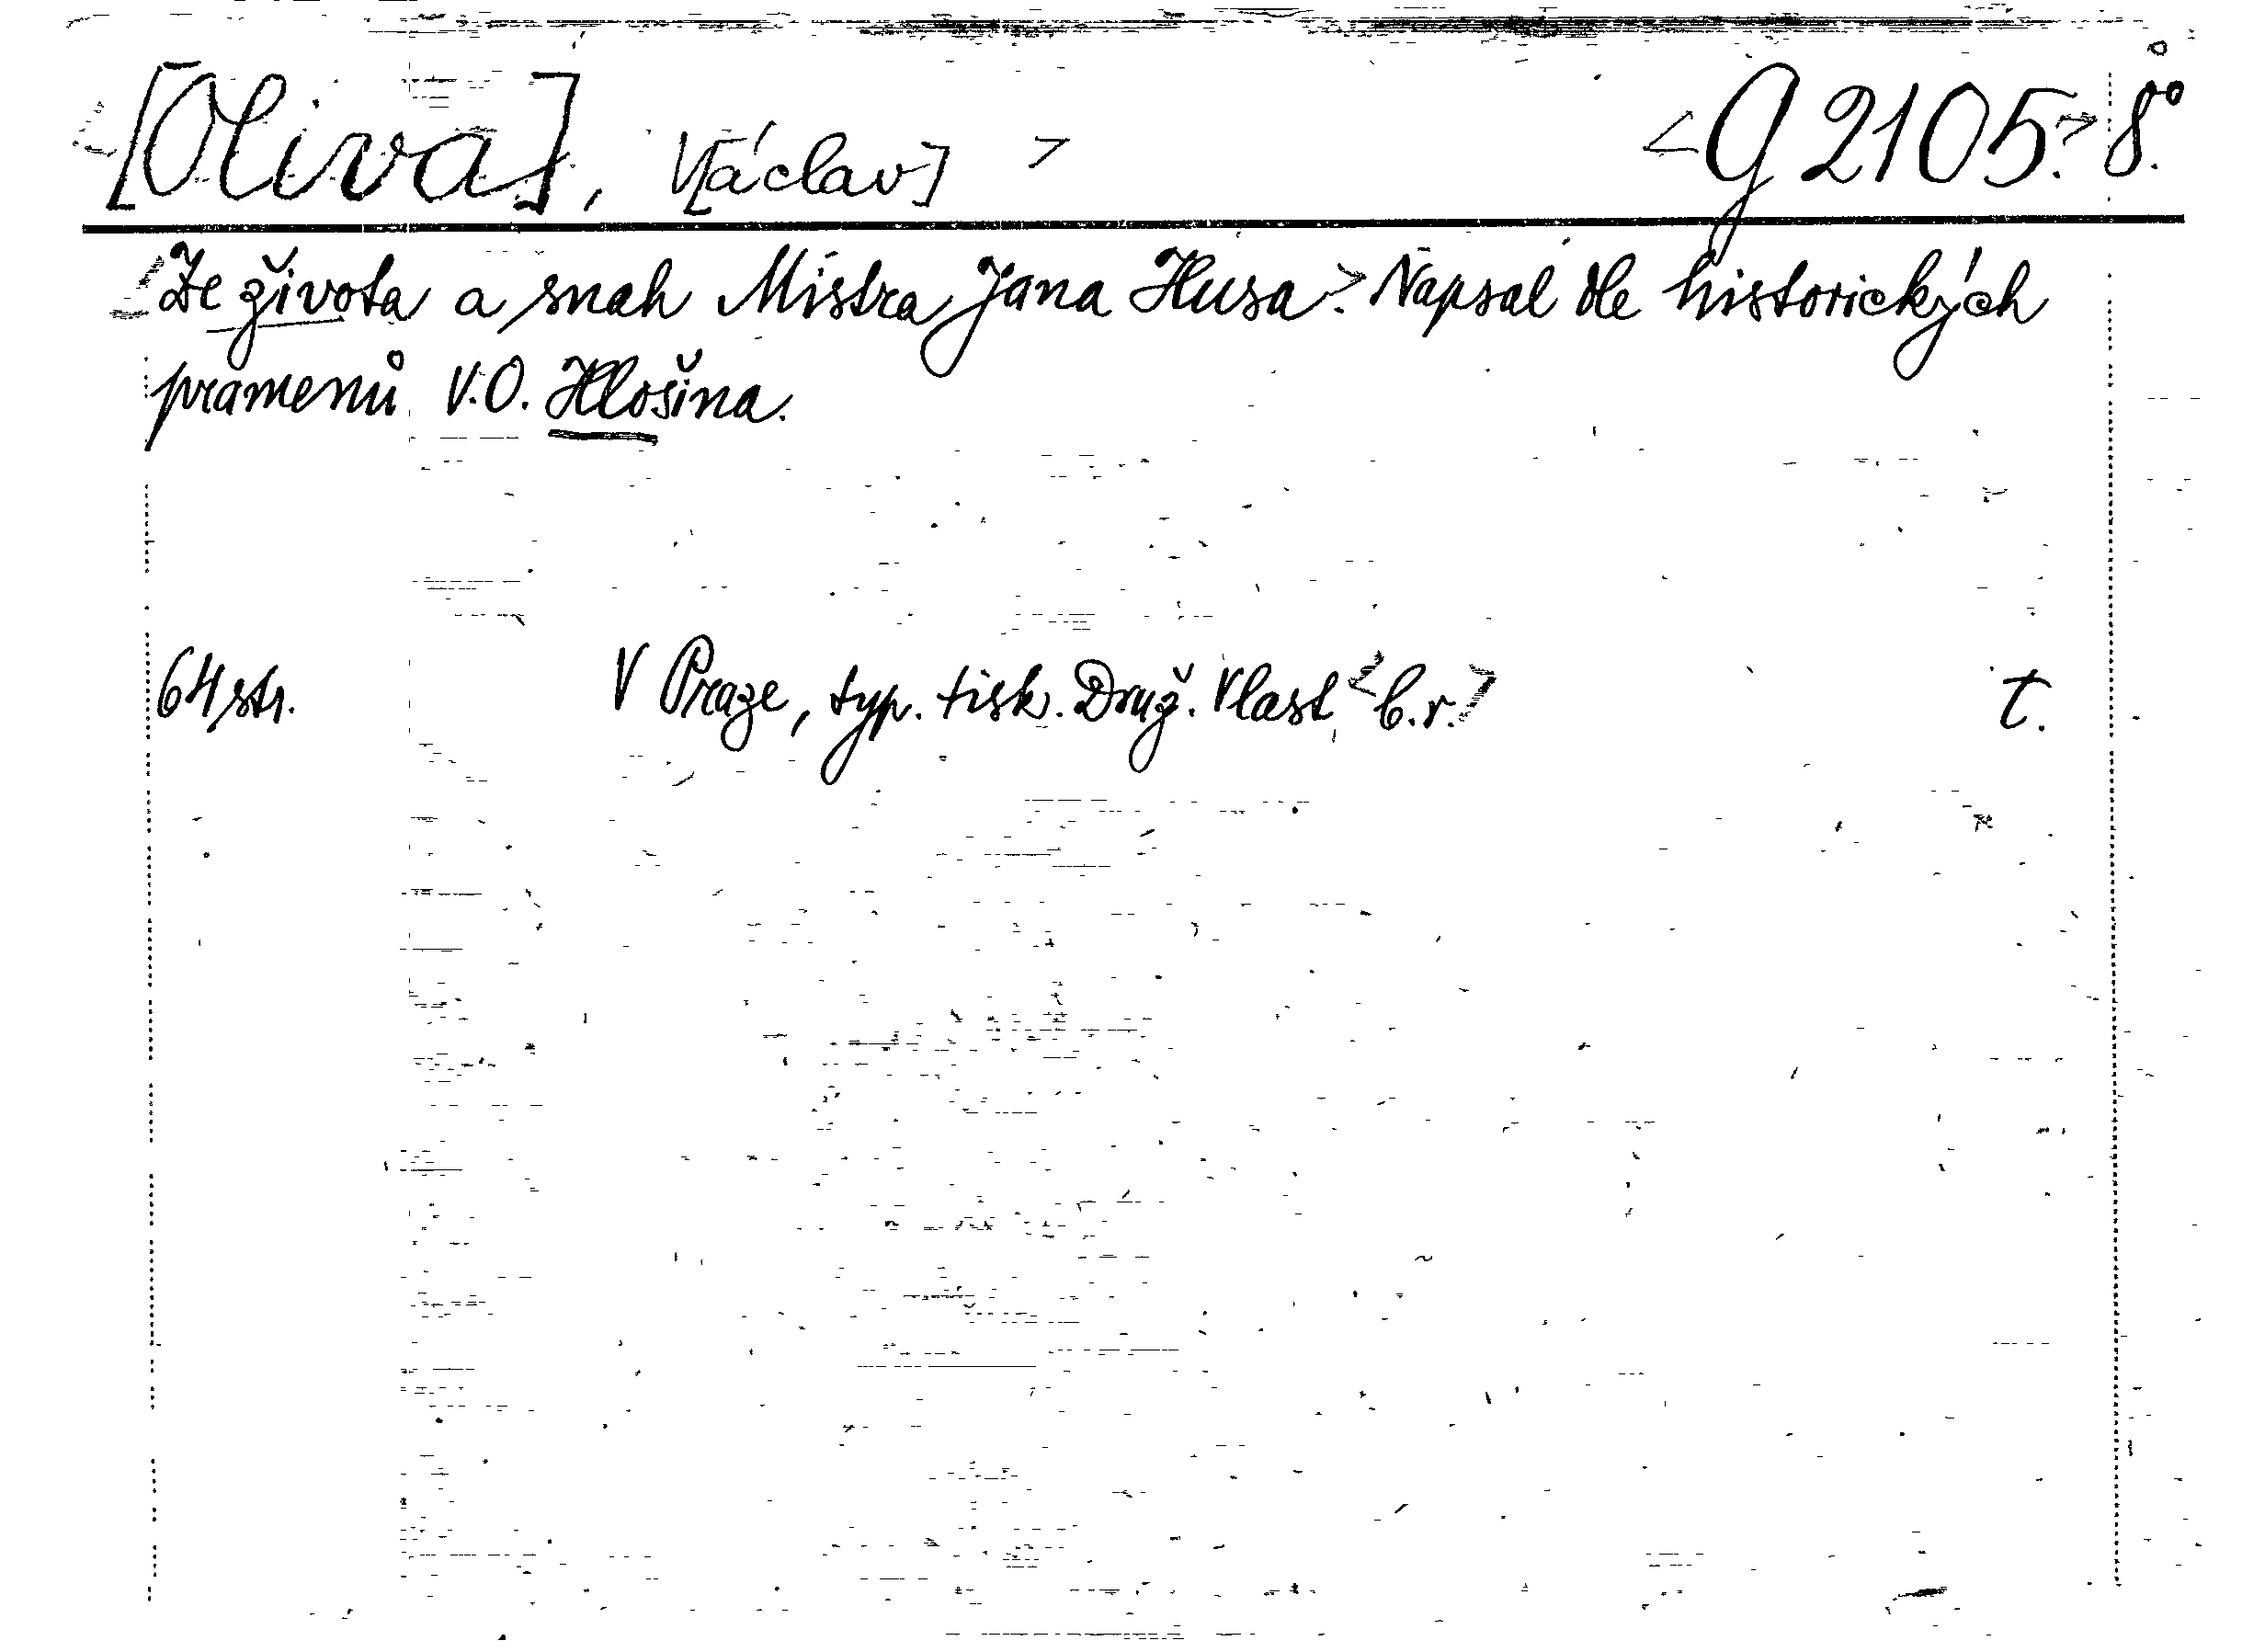 <[Oliva], V[áclav] > <G 2105.> 8°
<Ze života a snah Mistra Jana Husa.> Napsal dle historických
pramenů V. O. Hlošina.
64 str. V Praze, typ. tisk. Druž. Vlast <b. r.> t.